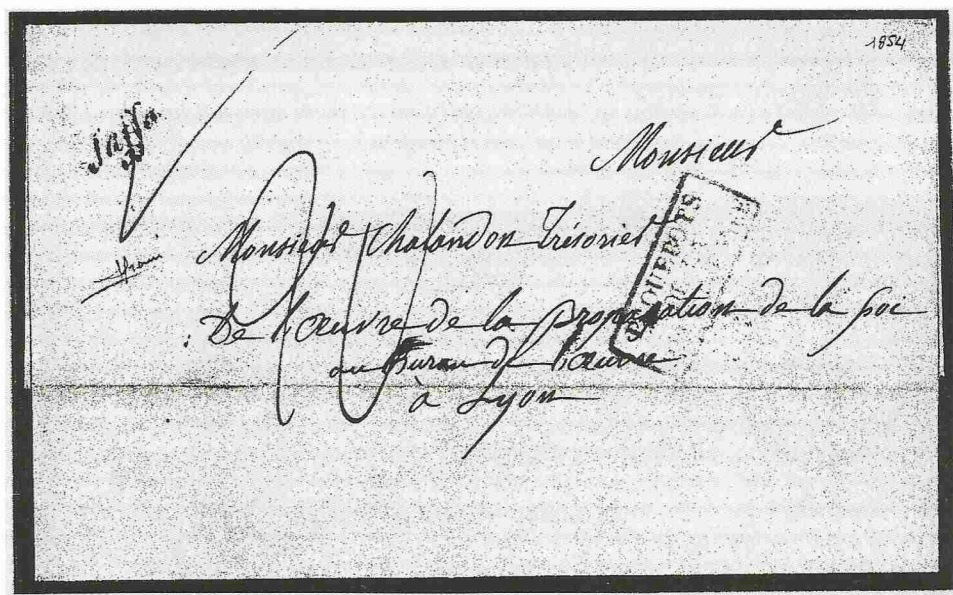 1854
Jaffa
Monsieur
Monsieur Chalandon Trésorier
De l'œuvre de la propagation de la foe
au Bureau de l'œuvre
à Lyon
PAQUEBOTS